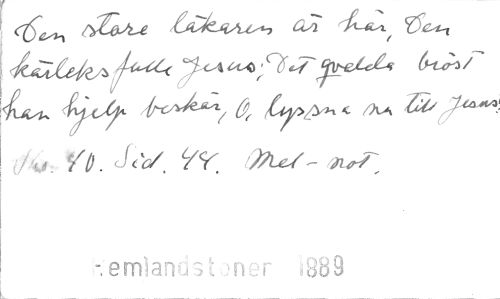 Den store läkaren är här, Den
kärleksfulle Jesus; Det qvalda bröst
han hjelp beskär, O, lyssna na till Jesus!
No. 40. Sid. 44. Mel-not.
Hemlandstoner 1889